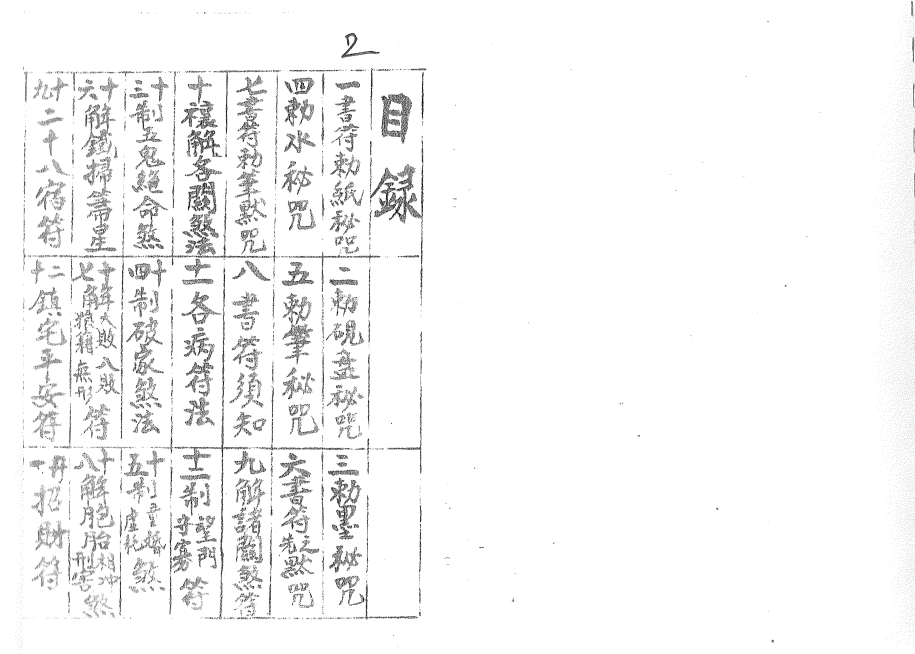 2
目錄
一書符勅紙秘咒
二勅硯盘秘咒
三勅墨秘咒
四勅水秘咒
五勅筆秘咒
六書符之先默咒
七書符勅筆默咒
八書符須知
九解諸關煞符
十禳解各關煞法
十一各病符法
十二制望門守寡符
十三制五鬼絕命煞
十四制破家煞法
十五制重婚虛耗煞
十六解鐵掃箒星
十七解大敗八敗狼藉無形符
十八解胞胎相冲刑害煞
十九二十八宿符
二十鎮宅平安符
廿一招財符